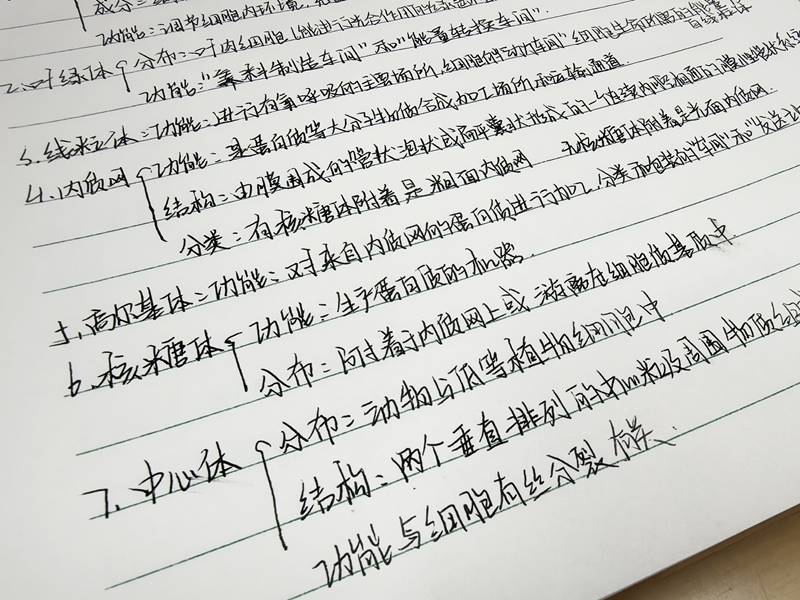 成分
功能：调节细胞内环境，
2.叶绿体 分布：叶肉细胞（能进行光合作用的
功能：“养料制造车间”和“能量转换车间”
3.线粒体：功能：进行有氧呼吸的主要场所，细胞的“动力车间”细胞生命所需的能量
4.内质网 功能：是蛋白质等大分子物质合成，加工场所和运输通道
结构：由膜围成的管状，泡状或扁平囊状形成的一个连续内腔相通的膜性管道
分类：有核糖体附着是粗面内质网 无核糖体附着是光面内质网
5.高尔基体：功能：对来自内质网的蛋白质进行加工，分类和包装的“车间”和“发送
6.核糖体 功能：生产蛋白质的机器
分布：附着于内质网上或游离在细胞质基质中
7.中心体 分布：动物与低等植物细胞中
结构：两个垂直排列的中心粒及周围物质
功能与细胞有丝分裂样